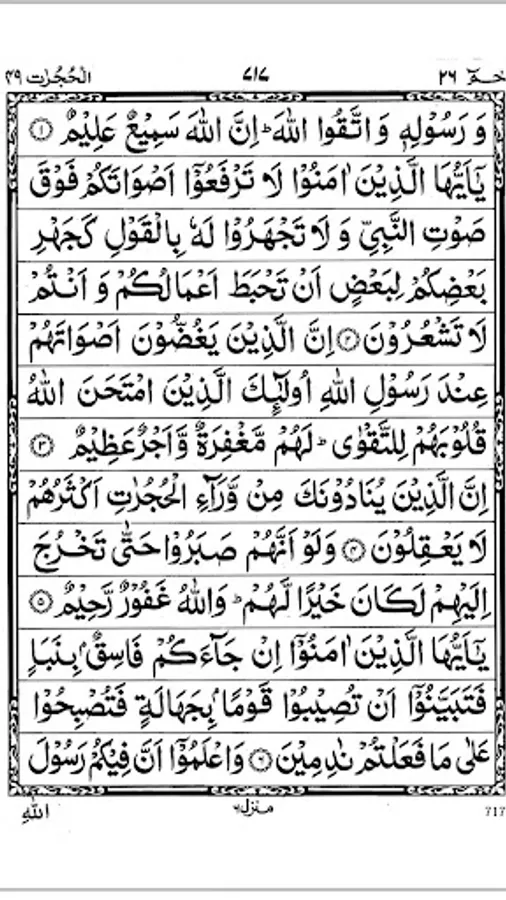 حٰمٓ ٢٦ ٧١٧ الْحُجُرٰت ٤٩
وَ رَسُوْلِهٖ وَ اتَّقُوا اللّٰهَ ؕ اِنَّ اللّٰهَ سَمِيْعٌ عَلِيْمٌ ۝١
يٰۤاَيُّهَا الَّذِيْنَ اٰمَنُوْا لَا تَرْفَعُوْۤا اَصْوَاتَكُمْ فَوْقَ
صَوْتِ النَّبِيِّ وَ لَا تَجْهَرُوْا لَهٗ بِالْقَوْلِ كَجَهْرِ
بَعْضِكُمْ لِبَعْضٍ اَنْ تَحْبَطَ اَعْمَالُكُمْ وَ اَنْتُمْ
لَا تَشْعُرُوْنَ ۝٢ اِنَّ الَّذِيْنَ يَغُضُّوْنَ اَصْوَاتَهُمْ
عِنْدَ رَسُوْلِ اللّٰهِ اُولٰٓئِكَ الَّذِيْنَ امْتَحَنَ اللّٰهُ
قُلُوْبَهُمْ لِلتَّقْوٰى ؕ لَهُمْ مَّغْفِرَةٌ وَّ اَجْرٌ عَظِيْمٌ ۝٣
اِنَّ الَّذِيْنَ يُنَادُوْنَكَ مِنْ وَّرَآءِ الْحُجُرٰتِ اَكْثَرُهُمْ
لَا يَعْقِلُوْنَ ۝٤ وَلَوْ اَنَّهُمْ صَبَرُوْا حَتّٰى تَخْرُجَ
اِلَيْهِمْ لَكَانَ خَيْرًا لَّهُمْ ؕ وَاللّٰهُ غَفُوْرٌ رَّحِيْمٌ ۝٥
يٰۤاَيُّهَا الَّذِيْنَ اٰمَنُوْۤا اِنْ جَآءَكُمْ فَاسِقٌۢ بِنَبَاٍ
فَتَبَيَّنُوْۤا اَنْ تُصِيْبُوْا قَوْمًۢا بِجَهَالَةٍ فَتُصْبِحُوْا
عَلٰى مَا فَعَلْتُمْ نٰدِمِيْنَ ۝٦ وَاعْلَمُوْۤا اَنَّ فِيْكُمْ رَسُوْلَ
717 منزل٦ اللّٰهِ